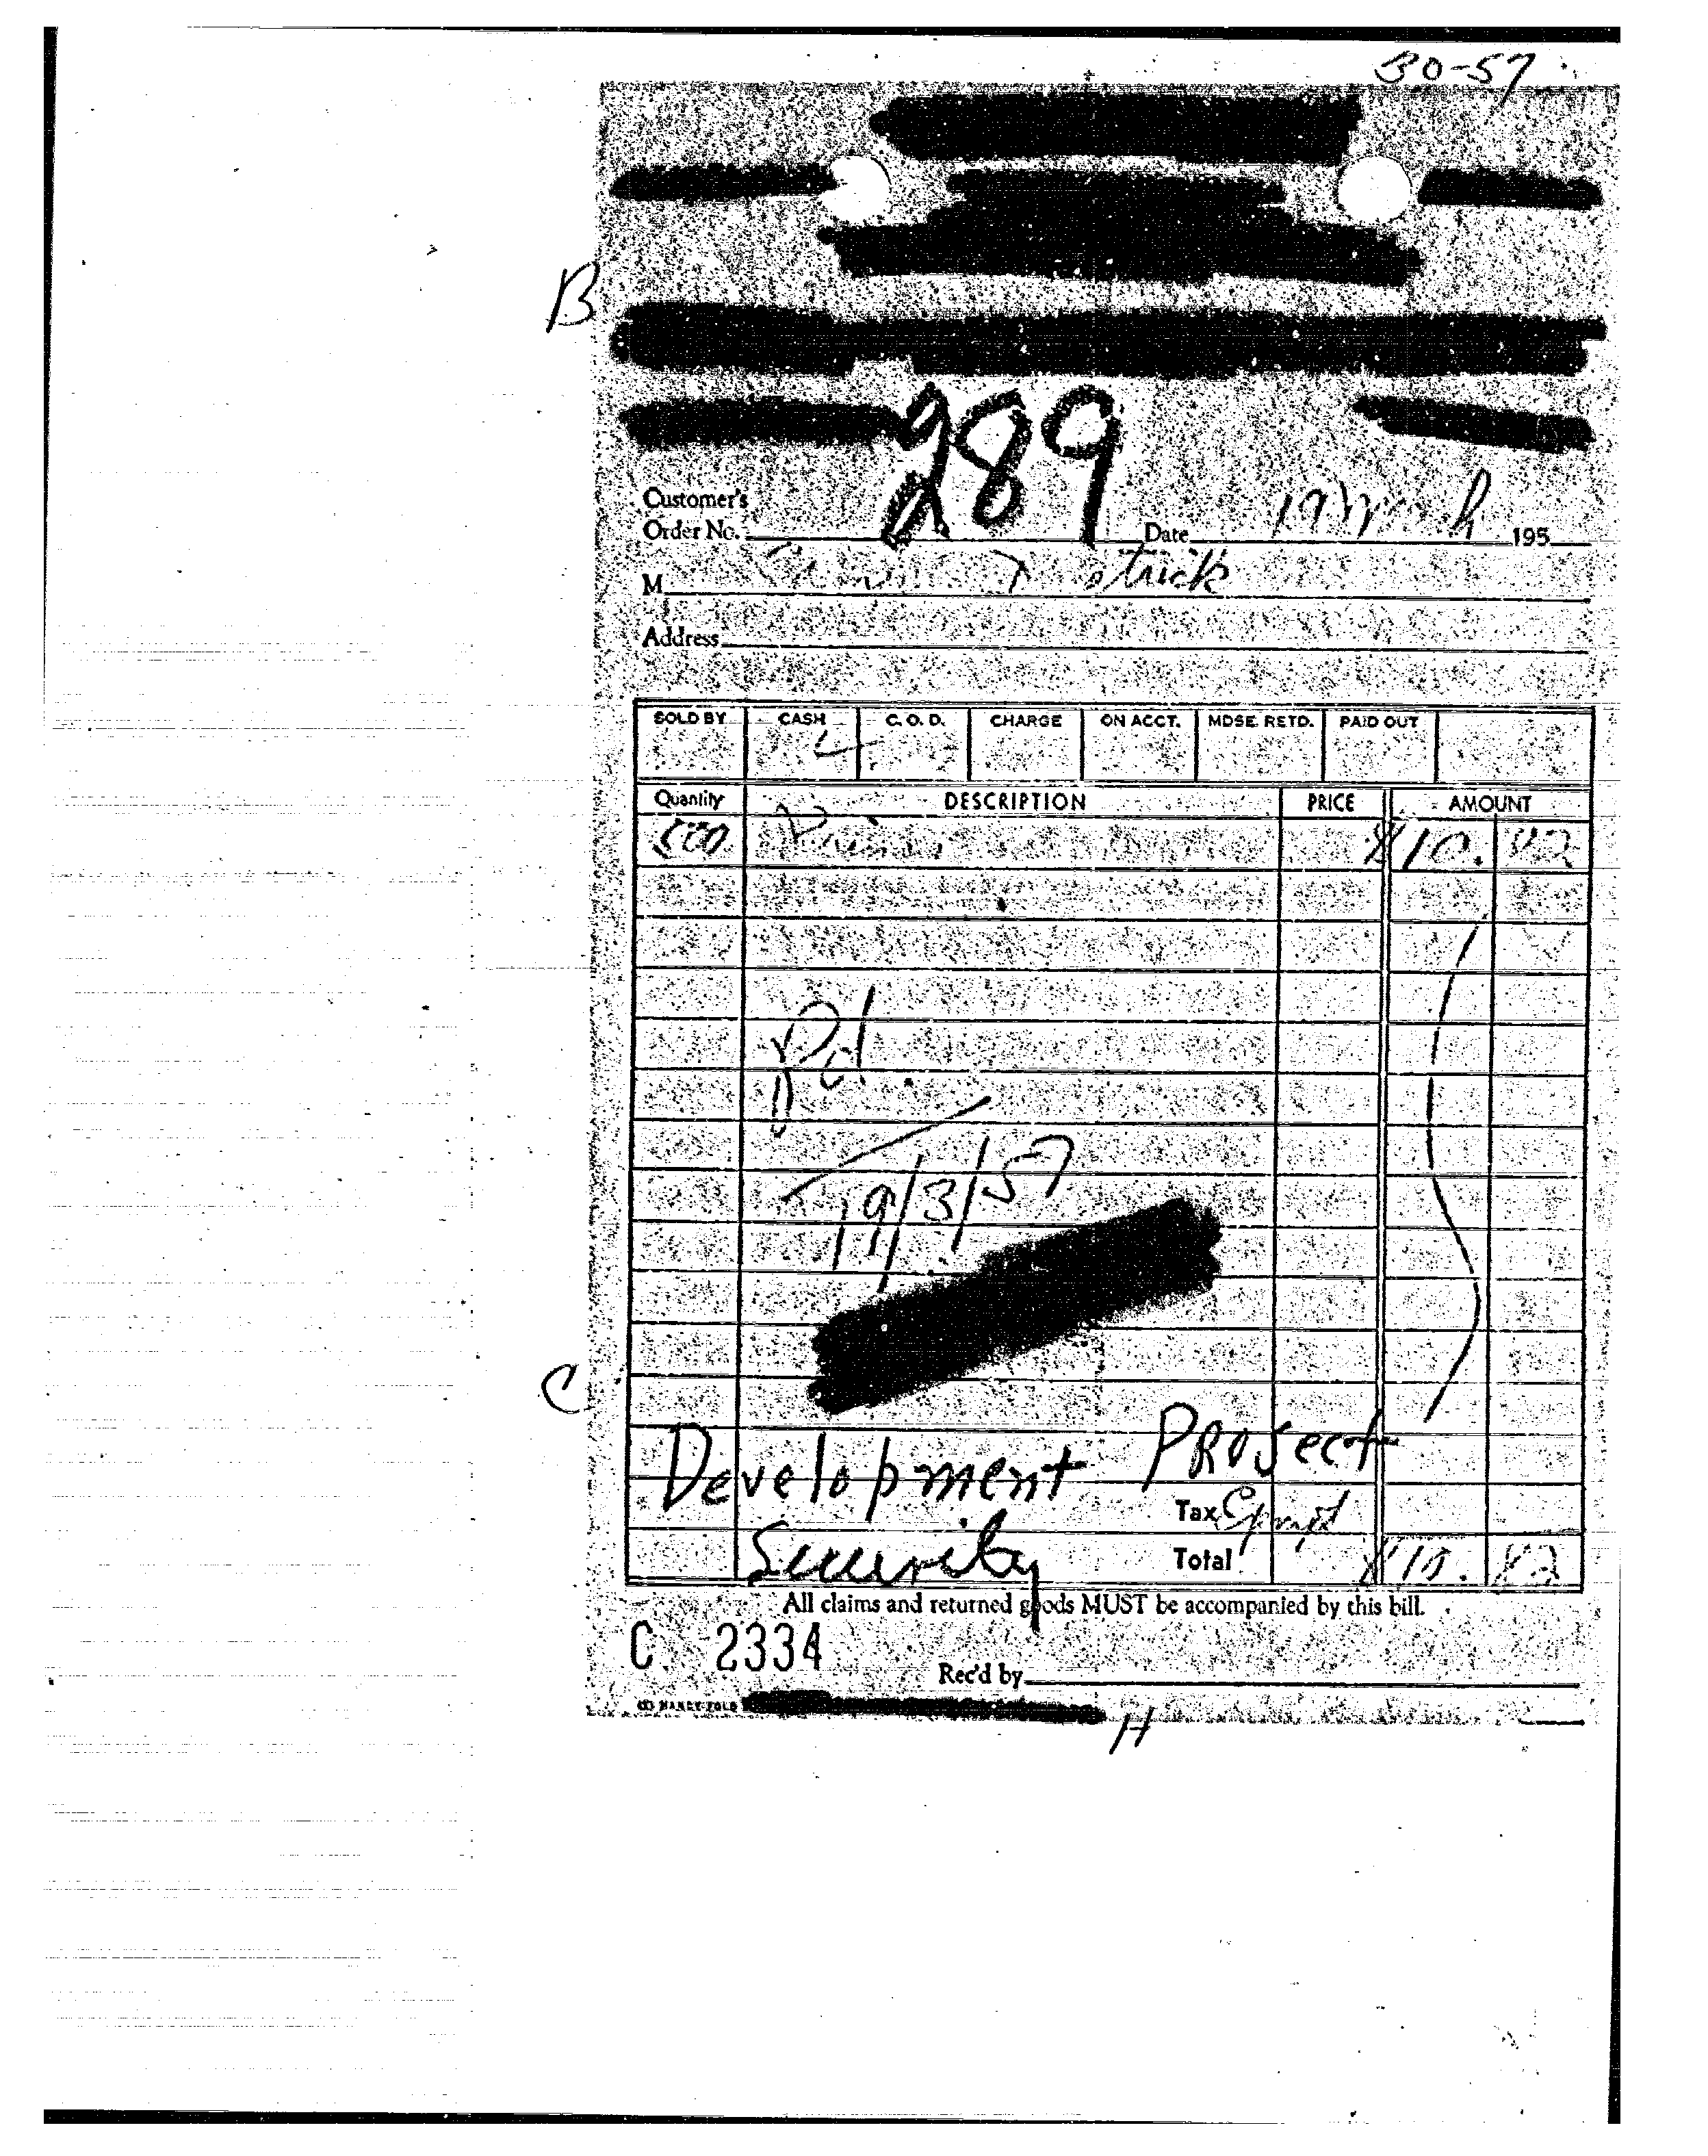 30-57
B
289
Customer's
Order No. Date 19 March 195
M
Address
SOLD BY CASH C. O. D. CHARGE ON ACCT. MDSE. RETD. PAID OUT
Quantity DESCRIPTION PRICE AMOUNT
500 $10.
Pd
19/3/57
C
Development Project
Tax
Security Total $10.
All claims and returned goods MUST be accompanied by this bill.
C 2334
Rec'd by
H